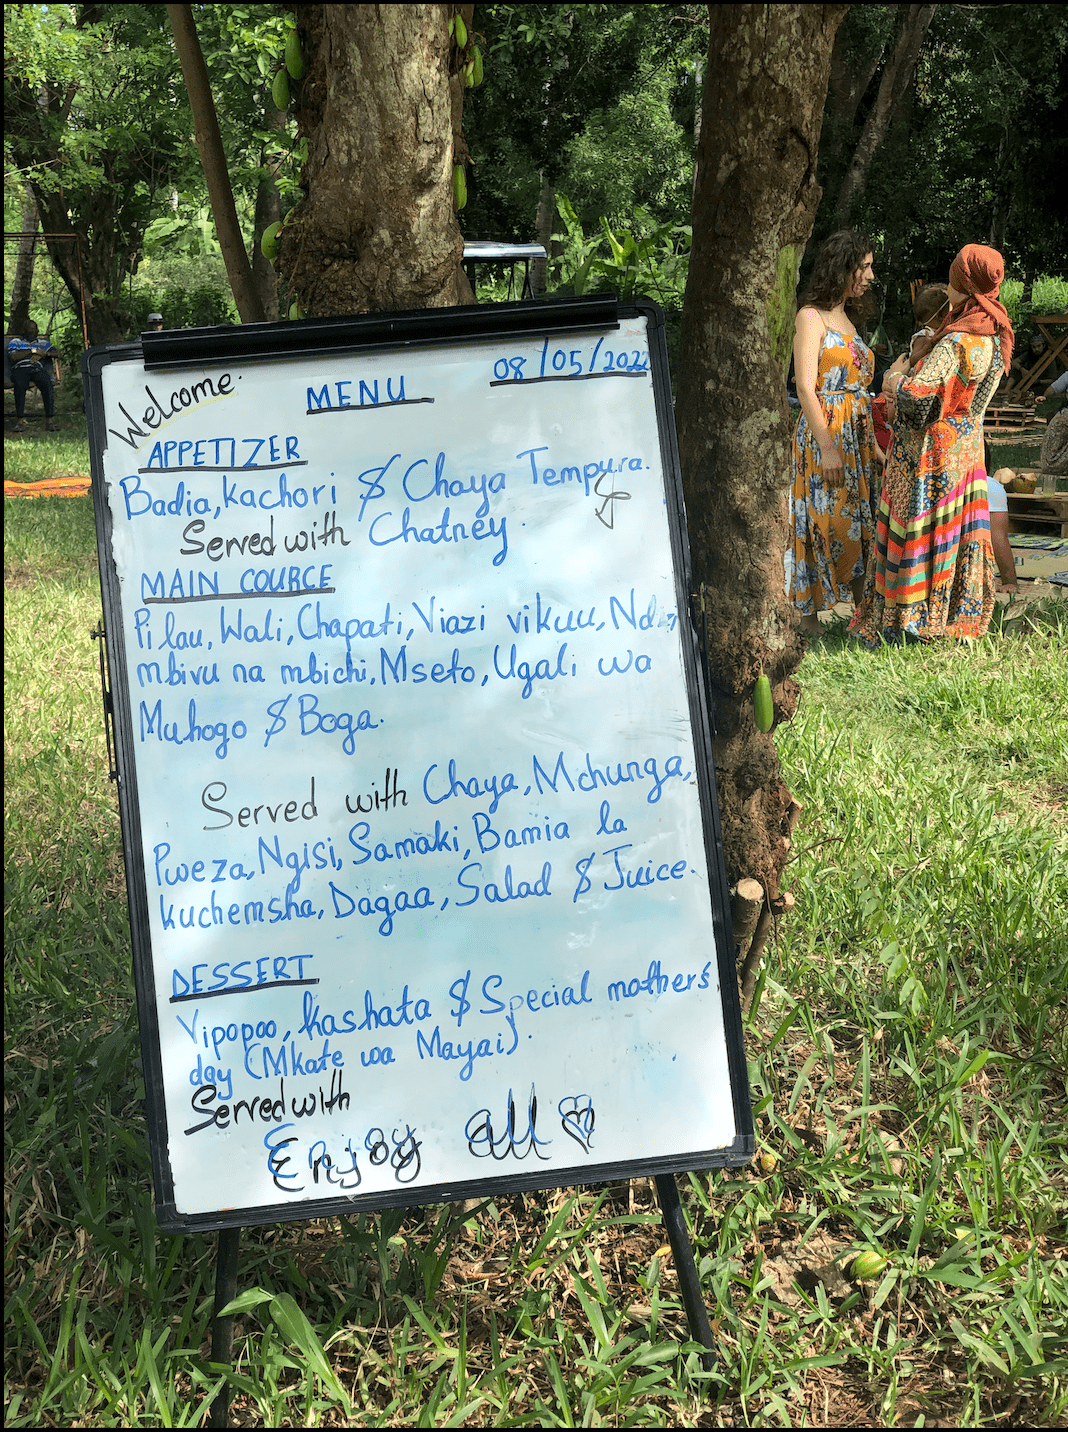 Welcome.
08/05/2022
MENU
APPETIZER
Badia, kachori $ Chaya Tempura.
Served with Chatney.
MAIN COURCE
Pilau, Wali, Chapati, Viazi vikuu, Ndizi
mbivu na mbichi, Mseto, Ugali wa
Muhogo $ Boga.
Served with Chaya, Mchunga,
Pweza, Ngisi, Samaki, Bamia la
kuchemsha, Dagaa, Salad $ Juice.
DESSERT
Vipopoo, kashata $ Special mother's
day (Mkate wa Mayai).
Served with
Enjoy all